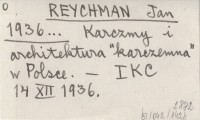 o
REYCHMAN Jan
1936... Karczmy i
architektura "karczemna"
w Polsce. — IKC
14 XII 1936.